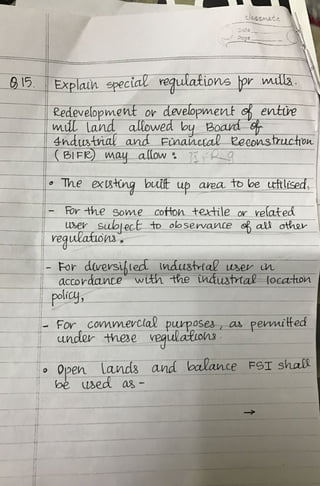 classmate
Date
Page
Q15. Explain special regulations for mills.
Redevelopment or development of entire
mill land allowed by Board of
Industrial and Financial Reconstruction
(BIFR) may allow:
• The existing built up area to be utilised,
- For the some cotton textile or related
user subject to observance of all other
regulations.
- For diversified industrial user in
accordance with the industrial location
policy,
- For commercial purposes, as permitted
under these regulations.
• Open lands and balance FSI shall
be used as -
→